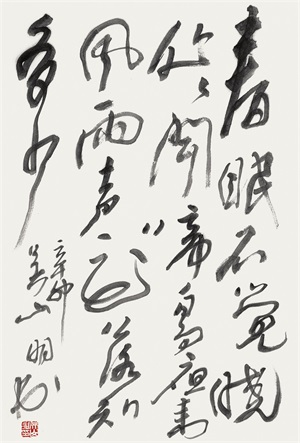 春眠不觉晓
处处闻啼鸟夜来
风雨声花落知
多少
辛卯
吴山明书